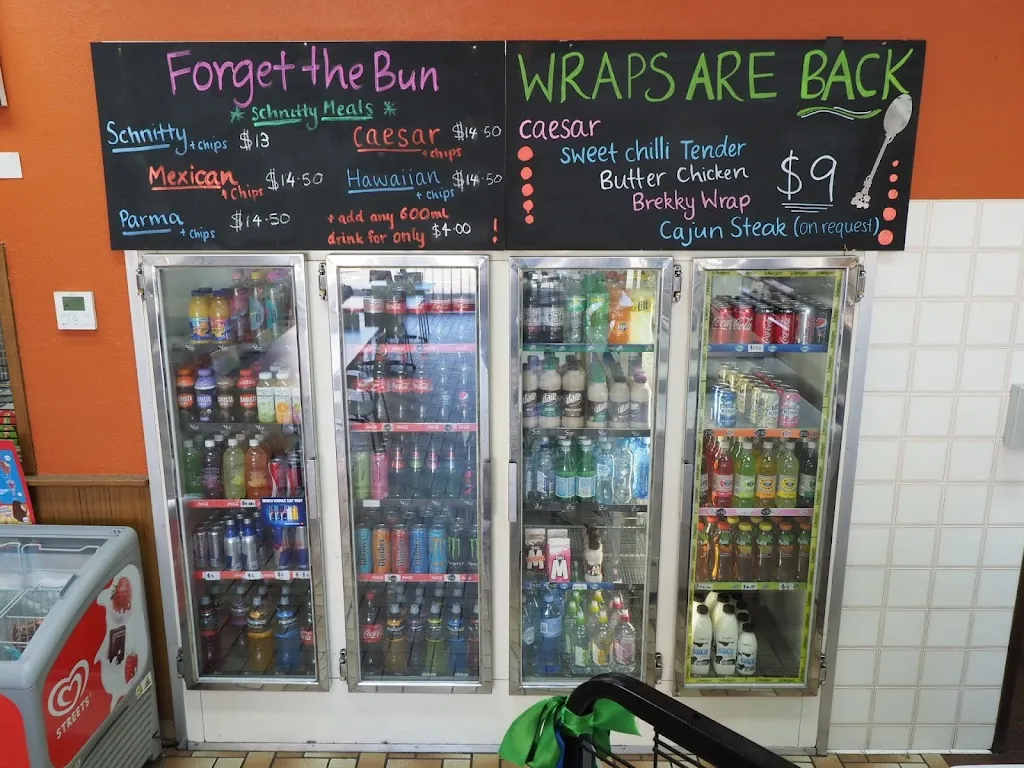 Forget the Bun
* Schnitty Meals *
Schnitty + chips $13
Caesar + chips $14.50
Mexican + Chips $14.50
Hawaiian + chips $14.50
Parma + chips $14.50
+ add any 600ml
drink for only $4.00 !
WRAPS ARE BACK
caesar
sweet chilli Tender
Butter Chicken
Brekky Wrap
Cajun Steak (on request)
$9
STREETS
Coca-Cola